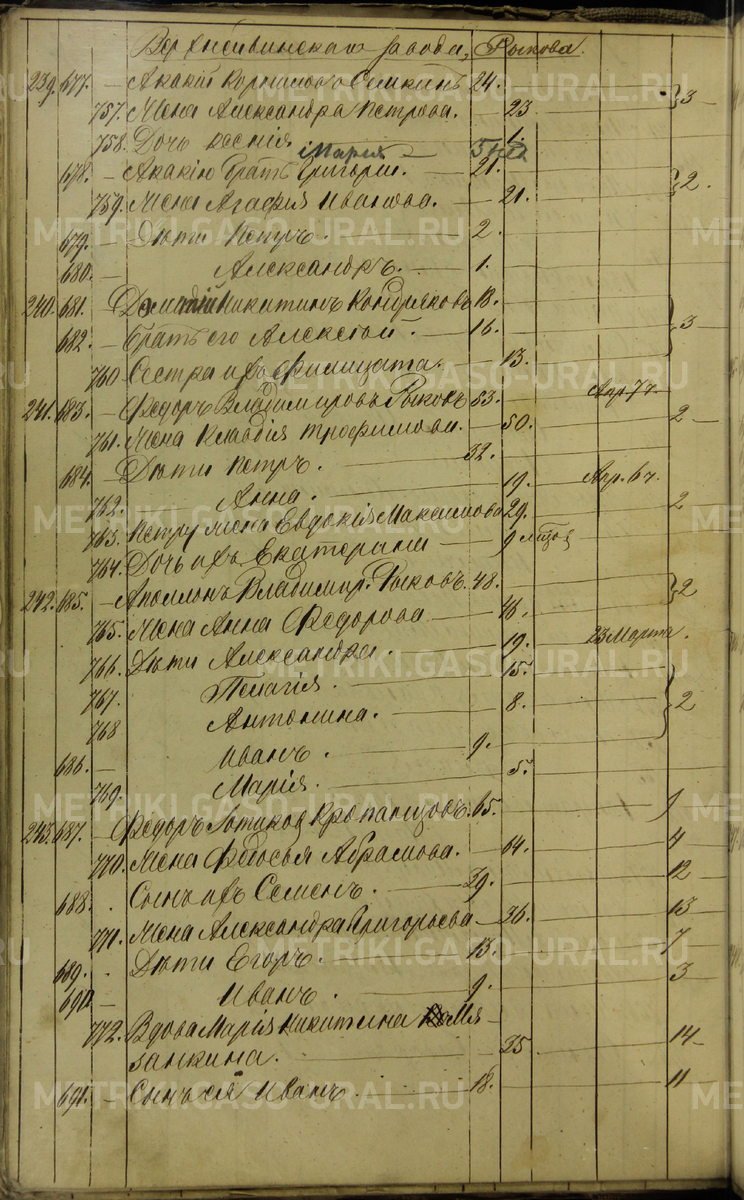 Рыкова.
239. 677. — Акакій Корниловъ Семкинъ 24.
757. Жена Александра Петрова. — 23 — 3
758. Дочь Ксенія — 1.
Марія —
678. — Акакію братъ Григорій. 21.
759. Жена Агафія Иванова. — 21. 2.
679. Дѣти Петръ. — 2.
680. — Александръ. — 1.
240. 681. Никитинъ Кондряковъ 18.
682. — Братъ его Алексѣй. — 16. 3
760 Сестра ихъ Филицата. — 13.
241. 683. — Ѳедоръ Владиміровъ Рыковъ 53. — Апр. 7 ч.
761. Жена Клавдія Трофимова. — 50. 2
684. — Дѣти Петръ. — 32.
762. Анна. — 19. Апр. 6 ч.
763. Петру жена Евдокія Максимова 29. 2
764. Дочь ихъ Екатерина — 9
242. 685. — Аполлонъ Владимір. Рыковъ. 48. 2
765. Жена Анна Ѳедорова — 46.
766. Дѣти Александра. — 19. 23 Марта.
767. Пелагія. — 15.
768 Антонина. — 8. 2
686. — Иванъ. — 9.
769. Марія. — 5.
243. 687. — Ѳедоръ 65. — 9
770. Жена Ѳедосья Абрамова. — 4
688. Сынъ ихъ Семенъ. — 39. — 12
771. Жена Александра Григорьева — 36. 13
689. Дѣти Егоръ. — 13. — 7
690. — Иванъ. — 9. — 3
772. Вдова Марія Никитина Мя-
занкина. — 35 14
691. — Сынъ ея Иванъ. — 18. — 11
METRIKI.GASO-URAL.RU